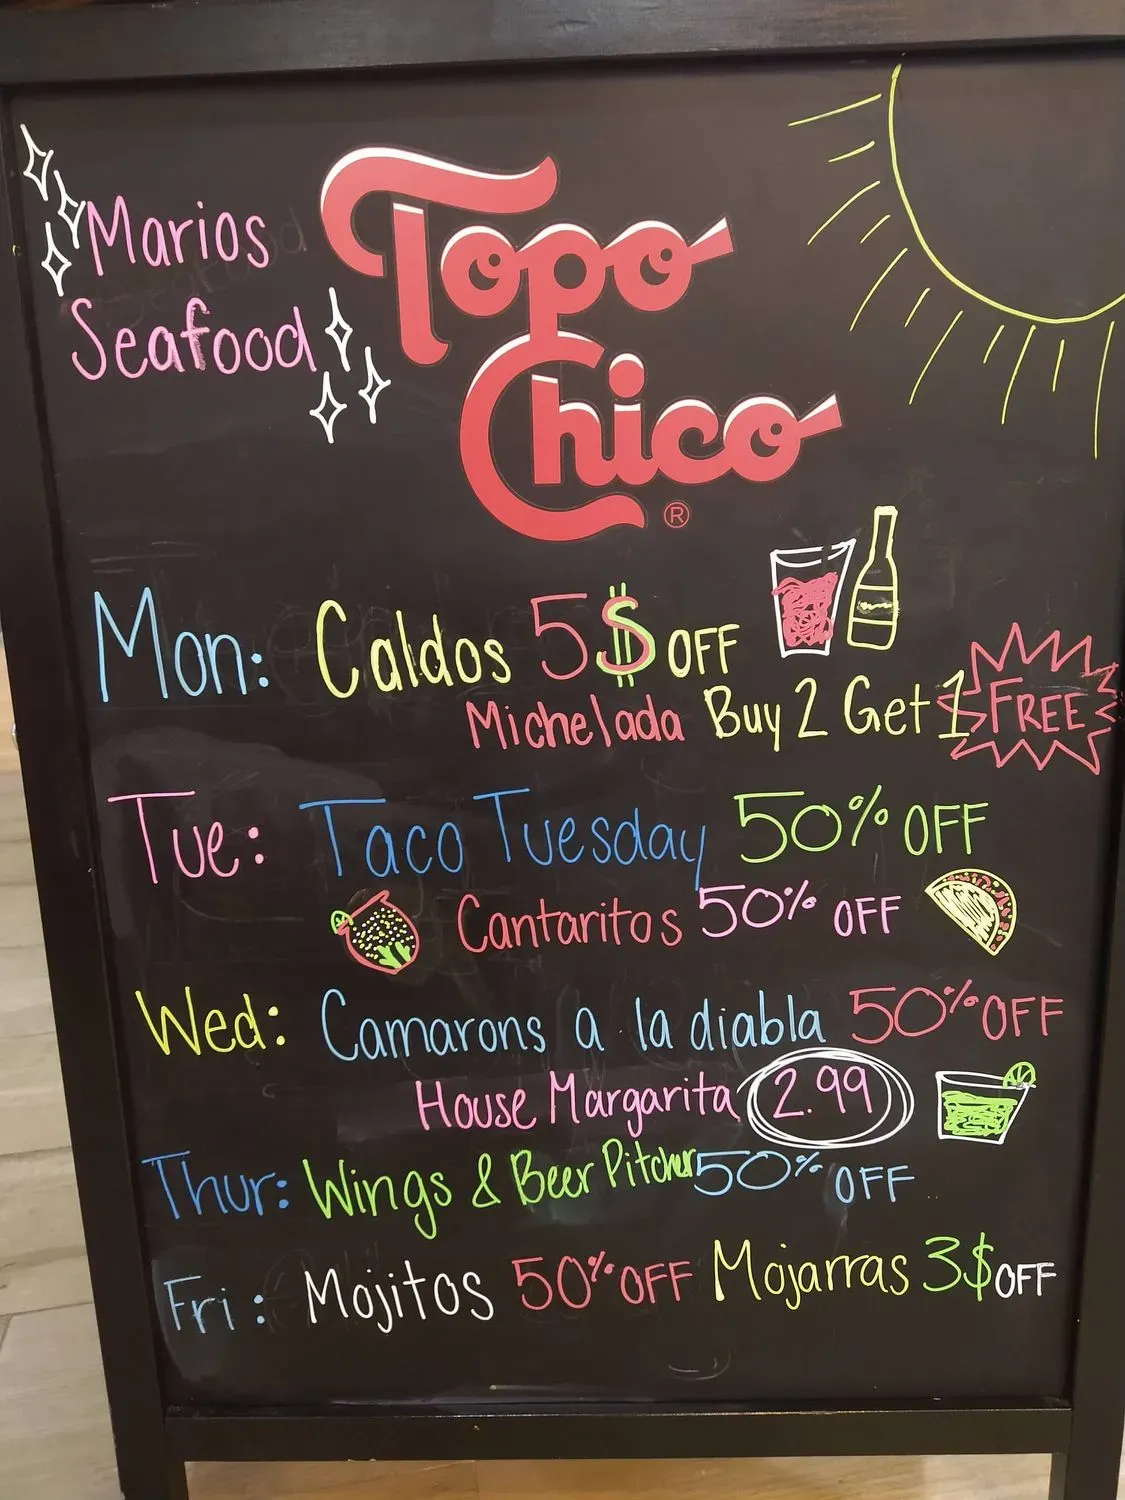 Marios
Seafood
Topo
Chico
®
Mon: Caldos 5$ OFF
Michelada Buy 2 Get 1 FREE
Tue: Taco Tuesday 50% OFF
Cantaritos 50% OFF
Wed: Camarons a la diabla 50% OFF
House Margarita 2.99
Thur: Wings & Beer Pitcher 50% OFF
Fri: Mojitos 50% OFF Mojarras 3$ OFF